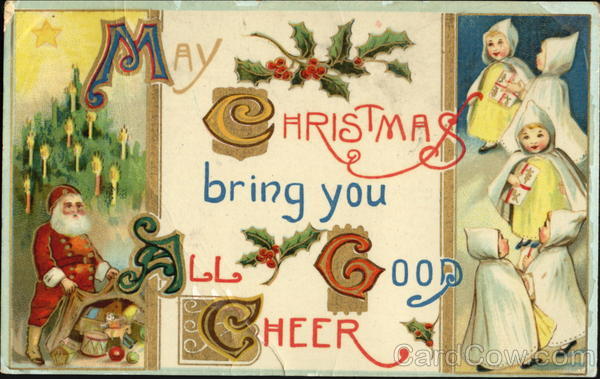 May
Christmas
bring you
All Good
Cheer
CardCow.com